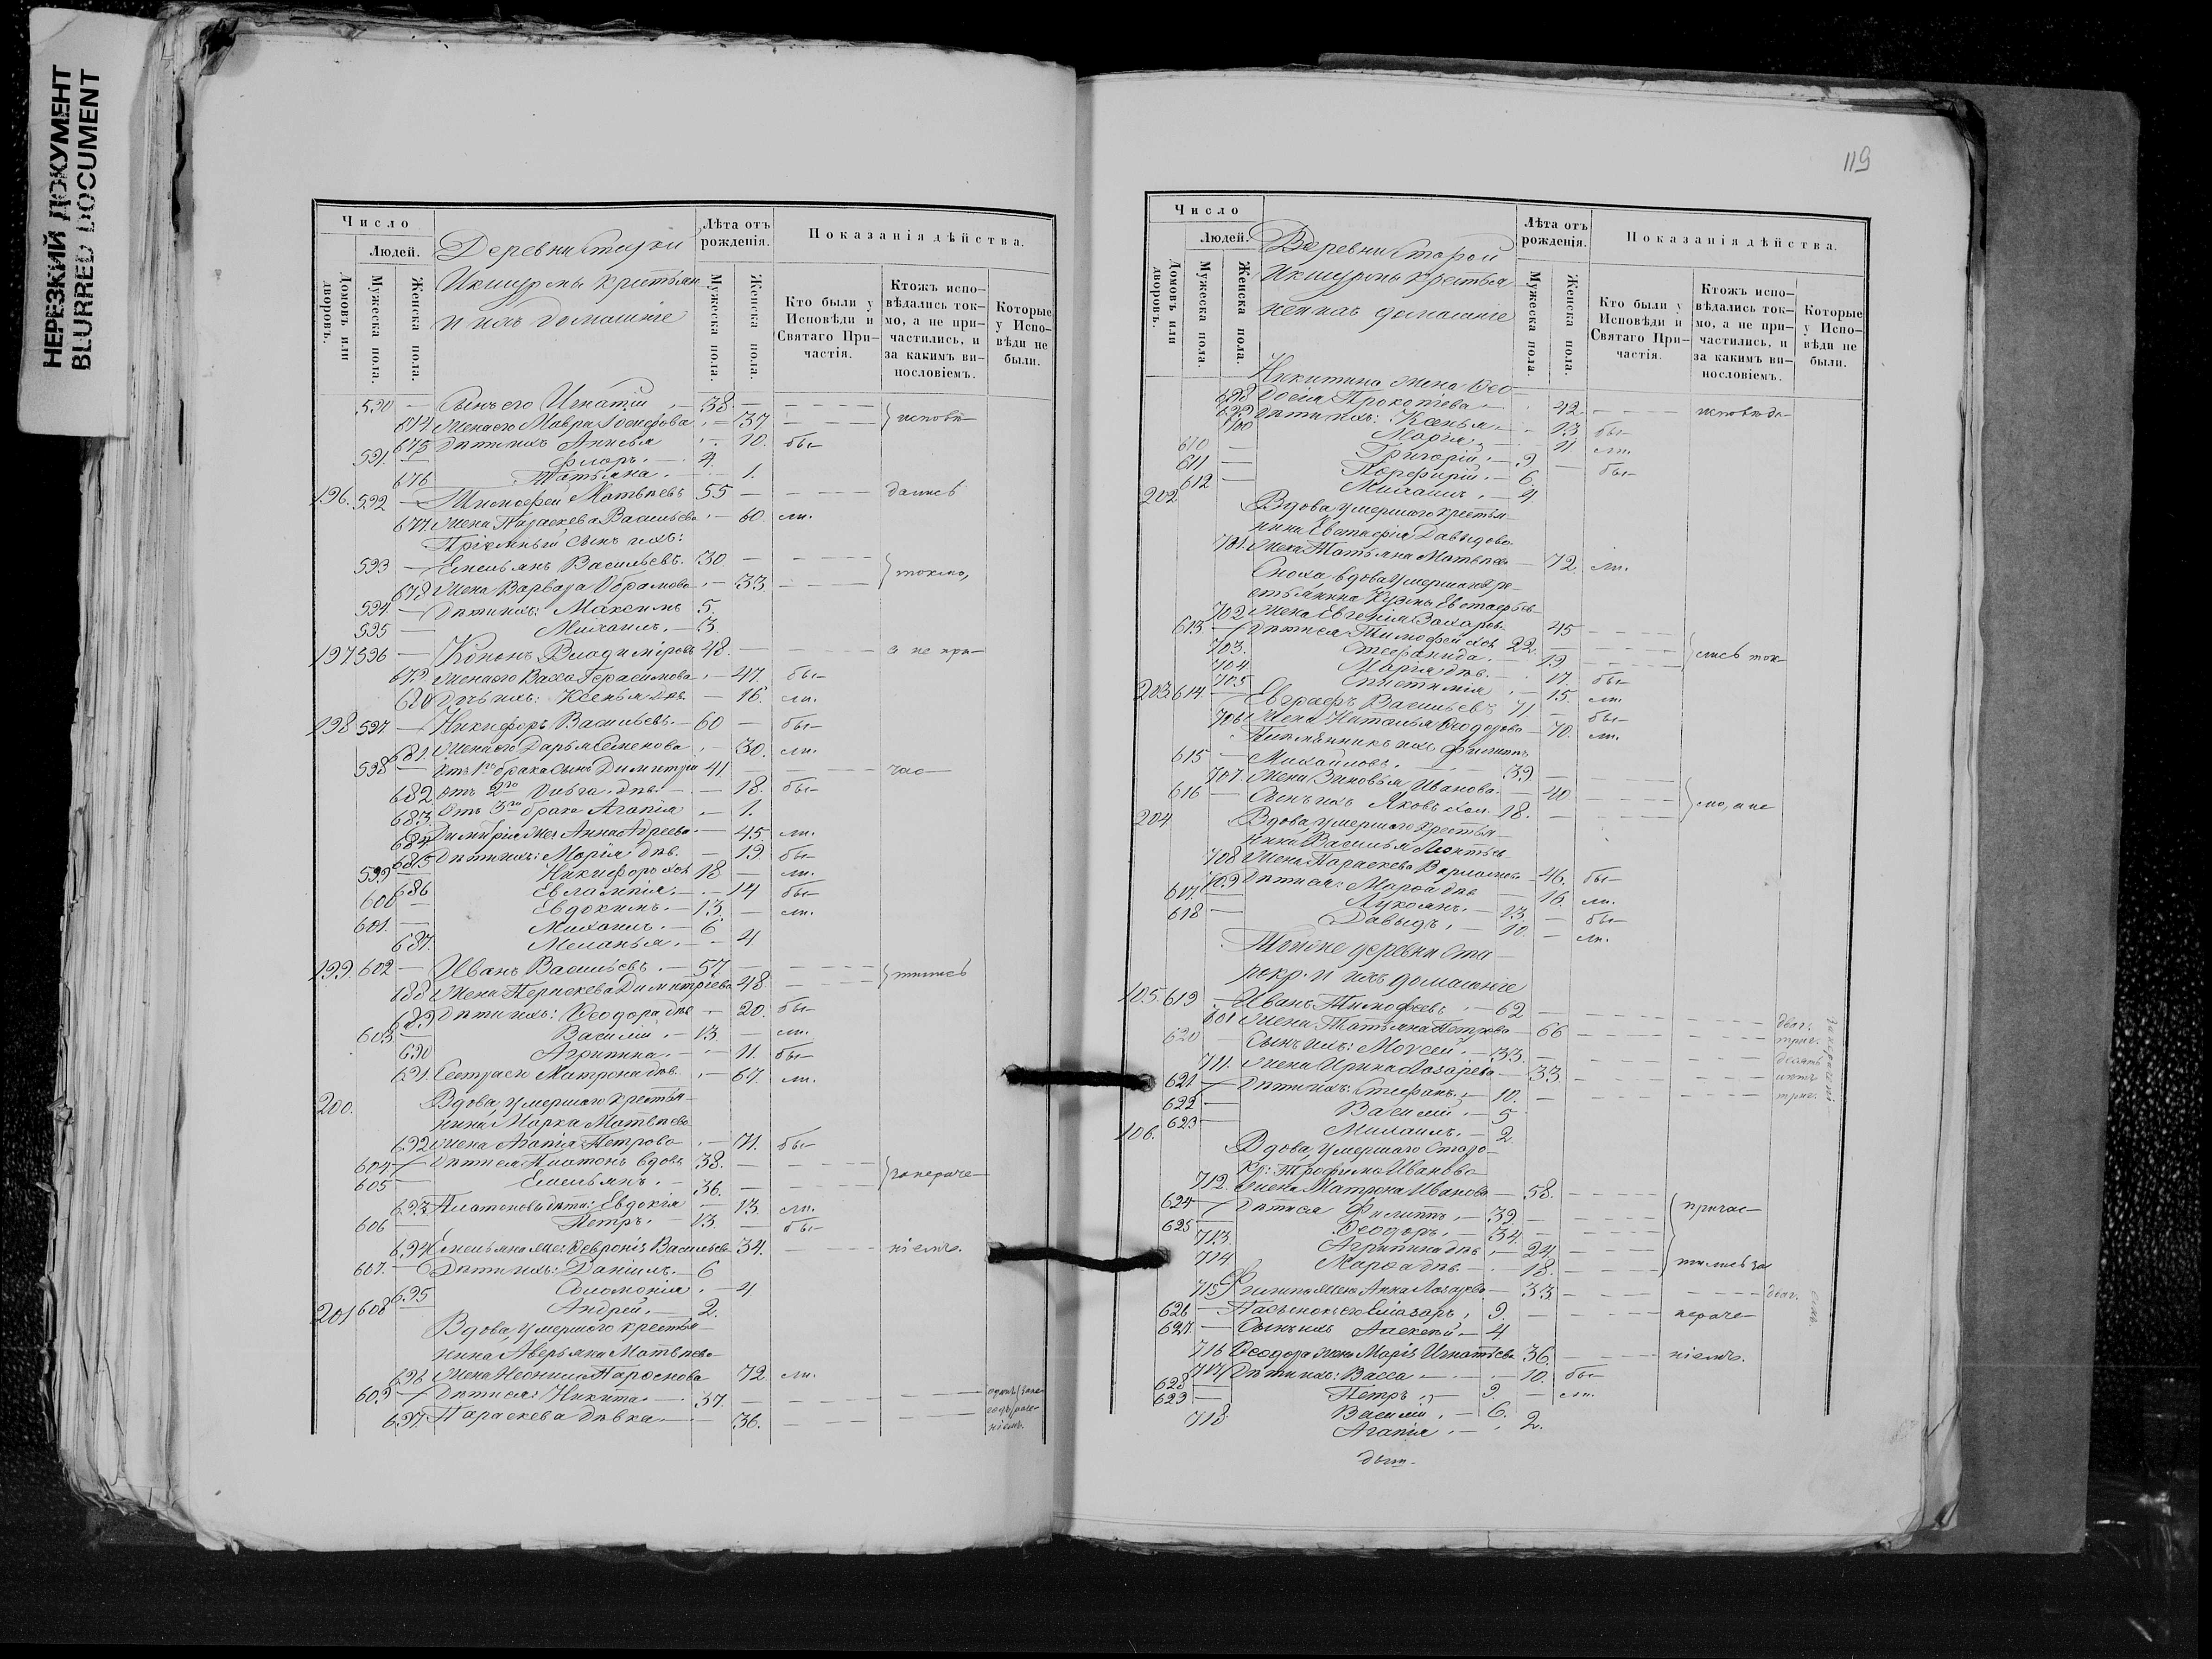 НЕРЕЗКИЙ ДОКУМЕНТ
BLURRED DOCUMENT
Число
Людей.
Домовъ или дворовъ.
Мужеска пола.
Женска пола.
Деревни Старой
Икшурмы крестьян
и ихъ домашніе
Лѣта отъ рожденія.
Мужеска пола.
Женска пола.
Показанія дѣйства.
Кто были у Исповѣди и Святаго Причастія.
Ктожъ исповѣдались токмо, а не причастились, и за какимъ винословіемъ.
Которые у Исповѣди не были.
590 — Сынъ его Игнатій 38 — исповѣ
674 Жена его Мавра Іосифова 37
675 Дѣти ихъ Анисья 10. бы—
591. — Флоръ. — 4.
676 Татьяна. — 1.
196. 592 — Тимофей Матвѣевъ 55 — дались
677 Жена Параскева Васильева — 60. ли.
Пріемный сынъ ихъ:
593 — Емельянъ Васильевъ. 30 — токмо,
678 Жена Варвара Абрамова — 33.
594. — Дѣти ихъ: Максимъ 5.
595 — Михаилъ. — 3.
197 596 — Кононъ Владиміровъ 48. — а не при—
679 Жена его Васса Герасимова — 47. бы—
680 Дочь ихъ: Ксенья дѣв. — 16. ли.
198 597 — Никифоръ Васильевъ. — 60 — бы—
681. Жена его Дарья Семенова — 30. ли.
598 — Отъ 1го брака сынъ Димитрій 41 — час—
682. Отъ 2го Ольга дѣв. — 18. бы—
683. Отъ 3го брака Агапія — 1.
684 Димитрія жен. Анна Адреева — 45. ли.
685 Дѣти ихъ: Марія дѣв. — 19. бы—
599 — Никифоръ хол 18 — ли.
686 Евлампія. — 14 бы—
600 — Евдокимъ. — 13. — ли.
601. — Михаилъ. — 6.
687. Меланья. — 4
199. 602 — Иванъ Васильевъ. — 57 — тились
688 Жена Параскева Димитріева 48
689 Дѣти ихъ: Ѳеодора дѣв — 20. бы—
603. — Василій. — 13. — ли.
690 Агрипина. — 11. бы—
691. Сестра ея Матрона дѣв. — 67. ли.
200. Вдова, умершаго крестья—
нина Марка Матвѣева
692 жена Агапія Петрова — 71. бы—
604 — Дѣти ея Платонъ вдовъ 38. — за нераче—
605 — Емельянъ. — 36.
693 Платоновы дѣти: Евдокія — 13. ли.
606 — Петръ. — 13. — бы—
694 Емельяна жен: Февронія Васильева 34. — ніемъ.
607. — Дѣти ихъ: Даніилъ. — 6
695 Соломонія. — 4
201 608 — Андрей. — 2.
Вдова, умершаго крестья—
нина Аверьяна Матвѣева
696 жена Неонила Парѳенова 72. ли.
609. — Дѣти ея: Никита. — 37.
697. Параскева дѣвка — 36.
ніемъ.
119
Число
Людей.
Домовъ или дворовъ.
Мужеска пола.
Женска пола.
Деревни Старой
Икшурмы крестья
не и ихъ домашніе
Лѣта отъ рожденія.
Мужеска пола.
Женска пола.
Показанія дѣйства.
Кто были у Исповѣди и Святаго Причастія.
Ктожъ исповѣдались токмо, а не причастились, и за какимъ винословіемъ.
Которые у Исповѣди не были.
Никитина жена Ѳео—
698 досія Прокопіева — 42. — исповѣда—
699 Дѣти ихъ: Ксенья — 13. бы—
700 Марія. — 11. ли.
610 — Григорій. — 9. — бы—
611 — Порфирій. — 6.
612 — Михаилъ. — 4.
202 Вдова умершаго крестья—
нина Евстафія Давыдова
701. Жена Татьяна Матвѣева — 72. ли.
Сноха, вдова умершаго кре—
стьянина Кузмы Евстафьев.
702 жена Евгенія Захаров. 45
613. — Дѣти ея Тимофей хол 22. — лись ток—
703. Стефанида. — 19.
704. Марія дѣв. — 17. бы—
705 Епистимія — 15. ли.
203. 614 — Евграфъ Васильевъ 71. — бы—
706 Жена Наталья Ѳеодорова — 70. ли.
Племянникъ ихъ Филиппъ
615 — Михайловъ. — 39
707. Жена Зиновья Иванова. — 40. — мо, а не
616 — Сынъ ихъ Яковъ хол. 18.
204 Вдова, умершаго крестья—
нина Василья Леонтьев.
708 Жена Параскева Варламова 46. бы—
709 Дѣти ея: Марѳа дѣв. 16. ли.
617. — Лукьянъ. — 13. — бы—
618 — Давыдъ. — 10. — ли.
Тойже деревни Ста
рокр. и ихъ домашніе
105. 619 — Иванъ Тимофеевъ — 62
Жена Татьяна Петрова — 66
620 — Сынъ ихъ: Моѵсей. — 33.
711. Жена Ирина Лазарева — 33.
621 — Дѣти ихъ: Стефанъ. — 10.
622 — Василій — 5
623 — Михаилъ. — 2.
106. Вдова, умершаго Старо—
кр: Трофима Иванова
712. Жена Матрона Иванова — 58. — причас—
624 — Дѣти ея Филиппъ. — 39.
625 — Ѳеодоръ. — 34.
713. Агрипина дѣв. — 24.
714 Марѳа дѣв. — 18. — тились за
715 Филиппа жена Анна Лазарева — 33.
626 — Пасынокъ его Елиазаръ, 9. — нераче—
627. — Сынъ ихъ Алексѣй — 4.
716 Ѳеодора жена Марія Игнатьева 36. — ніемъ.
717 Дѣти ихъ: Васса — 10. бы—
628 — Петръ — 9. — ли.
629 — Василій. — 6.
718. Агапія. — 2.